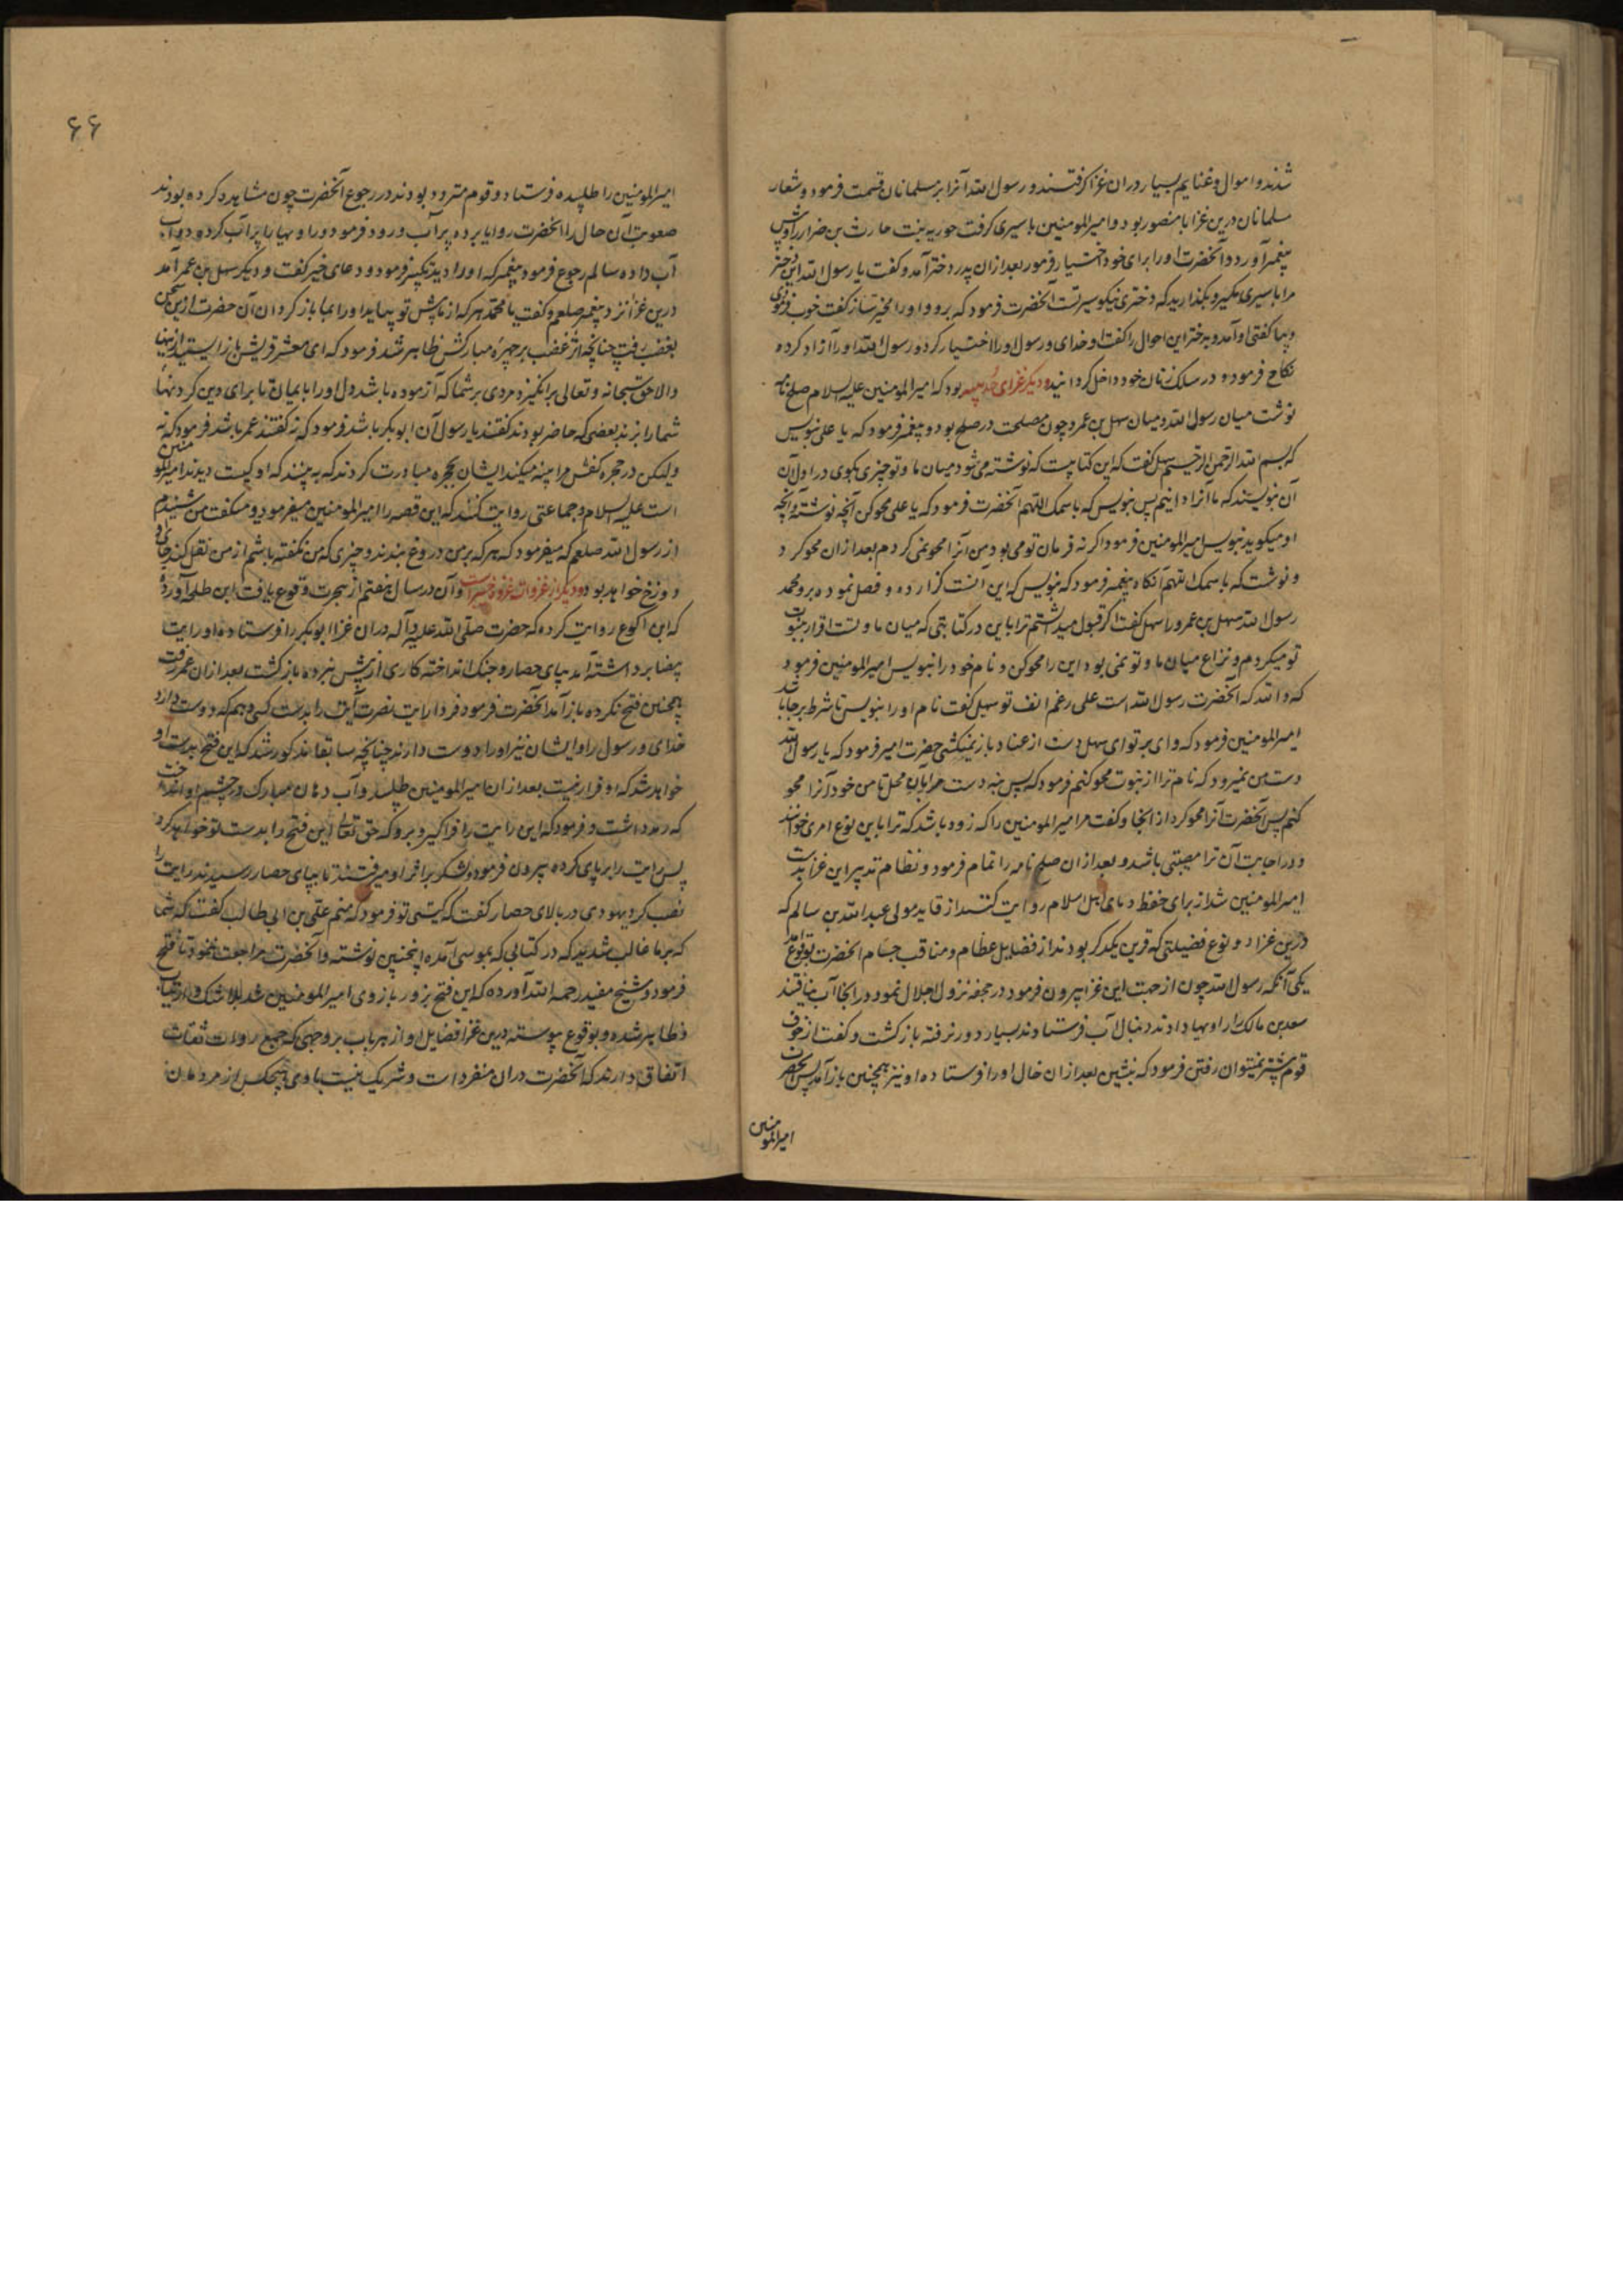 شدند و اموال و غنایم بسیار دران غزا گرفتند و رسول الله آنرا بر مسلمانان قسمت فرمود و شعار
مسلمانان درین غزا یا منصور بود و امیرالمومنین باسیری گرفت جویریه بنت حارث بن ضرار را و پیش
پیغمبر آورد و آنحضرت او را برای خود اختیار فرمود بعد ازان پدر دختر آمد و گفت یا رسول الله این دختر
مرا باسیری مگیر و بگذارید که دختری نیکو سیرتست آنحضرت فرمود که برو و او را مخیر ساز گفت خوب فرمودی
و بیا گفتی او آمد و بدختر این احوال را گفت او خدای و رسول او را اختیار کرد و رسول الله او را آزاد کرده
نکاح فرمود و در سلک زنان خود داخل گردانید و دیگر غزای حدیبیه بود که امیرالمومنین علیه السلام صلح نامه
نوشت میان رسول الله و میان سهل بن عمرو چون مصلحت در صلح بود و پیغمبر فرمود که یا علی بنویس
که بسم الله الرحمن الرحیم سهل گفت که این کتابیست که نوشته می شود میان ما و تو چیزی بگوی در اول آن
آن بنویسند که ما آنرا دانیم پس بنویس که باسمک اللهم آنحضرت فرمود که یا علی محو کن آنچه نوشته و آنچه
او میگوید بنویس امیرالمومنین فرمود اگر نه فرمان تو می بود من آنرا محو نمی کردم بعد ازان محو کرد
و نوشت که باسمک اللهم آنگاه پیغمبر فرمود که بنویس که این آنست گزارده و فصل نموده برو محمد
رسول الله سهل بن عمرو را سهل گفت اگر قبول میداشتم ترا باین در کتابتی که میان ما و تست اقرار بنبوت
تو میکردم و نزاع میان ما و تو نمی بود این را محو کن و نام خود را بنویس امیرالمومنین فرمود
که والله که آنحضرت رسول الله است علی رغم انف تو سهل گفت نام او را بنویس تا شرط بر جا باشد
امیرالمومنین فرمود که وای بر تو ای سهل دست از عناد باز نمیکشی حضرت امیر فرمود که یا رسول الله
دست من نمیرود که نام ترا از نبوت محو کنم فرمود که پس بنه دست مرا بآن محل تا من خود آنرا محو
کنم پس آنحضرت آنرا محو کرد از انجا و گفت مر امیرالمومنین را که زود باشد که ترا باین نوع امری خوانند
و در اجابت آن ترا مصیبتی باشد و بعد ازان صلح نامه را تمام فرمود و نظام تدبیر این غزا بدست
امیرالمومنین شد از برای حفظ دمای اهل اسلام روایت کنند از قاید مولی عبدالله بن سالم که
درین غزا دو نوع فضیلتی که قرین یکدگر بودند از فضایل عظام و مناقب جسام آنحضرت بوقوع آمد
یکی آنکه رسول الله چون از جهت این غزا بیرون فرمود در جحفه نزول اجلال نمود در انجا آب نیافتند
سعد بن مالک را راویها دادند دنبال آب فرستادند بسیار دور نرفته باز گشت و گفت از خوف
قوم پیشتر نمیتوان رفتن فرمود که بنشین بعد ازان خال او را فرستاده او نیز همچنین باز آمد پس آنحضرت
امیرالمومنین
۶۶
امیرالمومنین را طلبیده فرستاد و قوم متردد بودند در رجوع آنحضرت چون مشاهده کرده بودند
صعوبت آن حال را آنحضرت روایا برده بر آب ورود فرمود و راویها را پر آب کرده دواب
آب داده سالم رجوع فرمود پیغمبر که او را دید تکبیر فرمود و دعای خیر گفت و دیگر سهل بن عمرو آمد
درین غزا نزد پیغمبر صلعم و گفت یا محمد هر که از ما پیش تو بیاید او را بما باز گردان آن حضرت ازین سخن
بغضب رفت چنانچه اثر غضب بر چهره مبارکش ظاهر شد فرمود که ای معشر قریش باز ایستید ازینها
والا حق سبحانه و تعالی بر انگیزد مردی بر شما که آزموده باشد دل او را بایمان تا برای دین گردنهای
شما را بزند بعضی که حاضر بودند گفتند یا رسول آن ابوبکر باشد فرمود که نه گفتند عمر باشد فرمود که نه
ولیکن در حجره کفش مرا پینه میکند ایشان بحجره مبادرت کردند که ببینند که او کیست دیدند امیرالمومنین
است علیه السلام و جماعتی روایت کنند که این قصه را امیرالمومنین میفرمود و میگفت من شنیدم
از رسول الله صلعم که میفرمود که هر که بر من دروغ بندد و چیزی که من نگفته باشم از من نقل کند جای او
دوزخ خواهد بود و دیگر از غزوات غزوه خیبر است و آن در سال هفتم از هجرت وقوع یافت ابن طلحه آورده
که ابن اکوع روایت کرده که حضرت صلی الله علیه و آله دران غزا ابوبکر را فرستاده او رایت
بیضا برداشته آمد بپای حصار و جنگ انداخته کاری از پیش نبرده باز گشت بعد ازان عمر رفت
همچنین فتح نکرده باز آمد آنحضرت فرمود فردا رایت نصرت آیت را بدست کسی دهم که دوست دارد
خدای و رسول را و ایشان نیز او را دوست دارند چنانچه سابقا مذکور شد که این فتح بدست او
خواهد شد که او فرار نیست بعد ازان امیرالمومنین طلبید و آب دهان مبارک در چشم او انداخت
که رمد داشت و فرمود که این رایت را فرا گیر و برو که حق تعالی این فتح را بدست تو خواهد کرد
پس رایت را بر پای کرده بیرون فرمود و لشکر بر اثر او میرفتند تا بپای حصار رسیدند رایت را
نصب کرد یهودی در بالای حصار گفت که کیستی تو فرمود که منم علی بن ابی طالب گفت که شما
که بر ما غالب شدید که در کتابی که بموسی آمده اینچنین نوشته و آنحضرت مراجعت ننمود تا فتح
فرمود و شیخ مفید رحمه الله آورده که این فتح بزور بازوی امیرالمومنین شد بلا شک و ارتیاب
و ظاهر شده و بوقوع پیوسته درین غزا فضایل او از هر باب بر وجهی که جمیع روات ثقات
اتفاق دارند که آنحضرت دران منفرد است و شریک نیست با وی هیچکس از مردمان